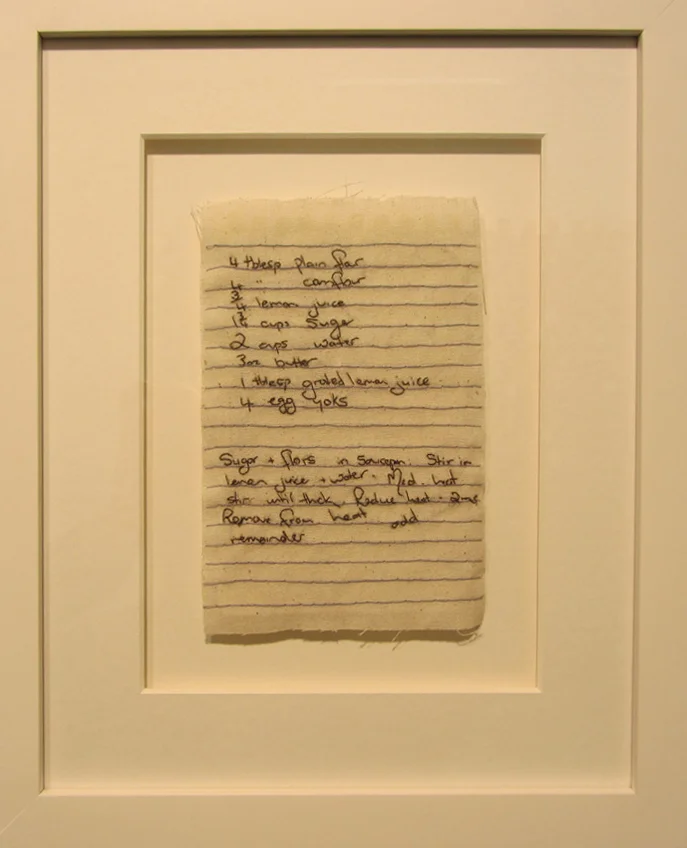 4 tblesp plain flar
4 " cornflour
3/4 lemon juice
1 3/4 cups Suge
2 cups water
3oz butter
1 tblesp grated lemon juice
4 egg yoks
Sugar + flors in Saucepan. Stir in
lemon juice + water. Med. heat
stir until thick. Reduce heat - 2ms
Remove from heat add
remainder